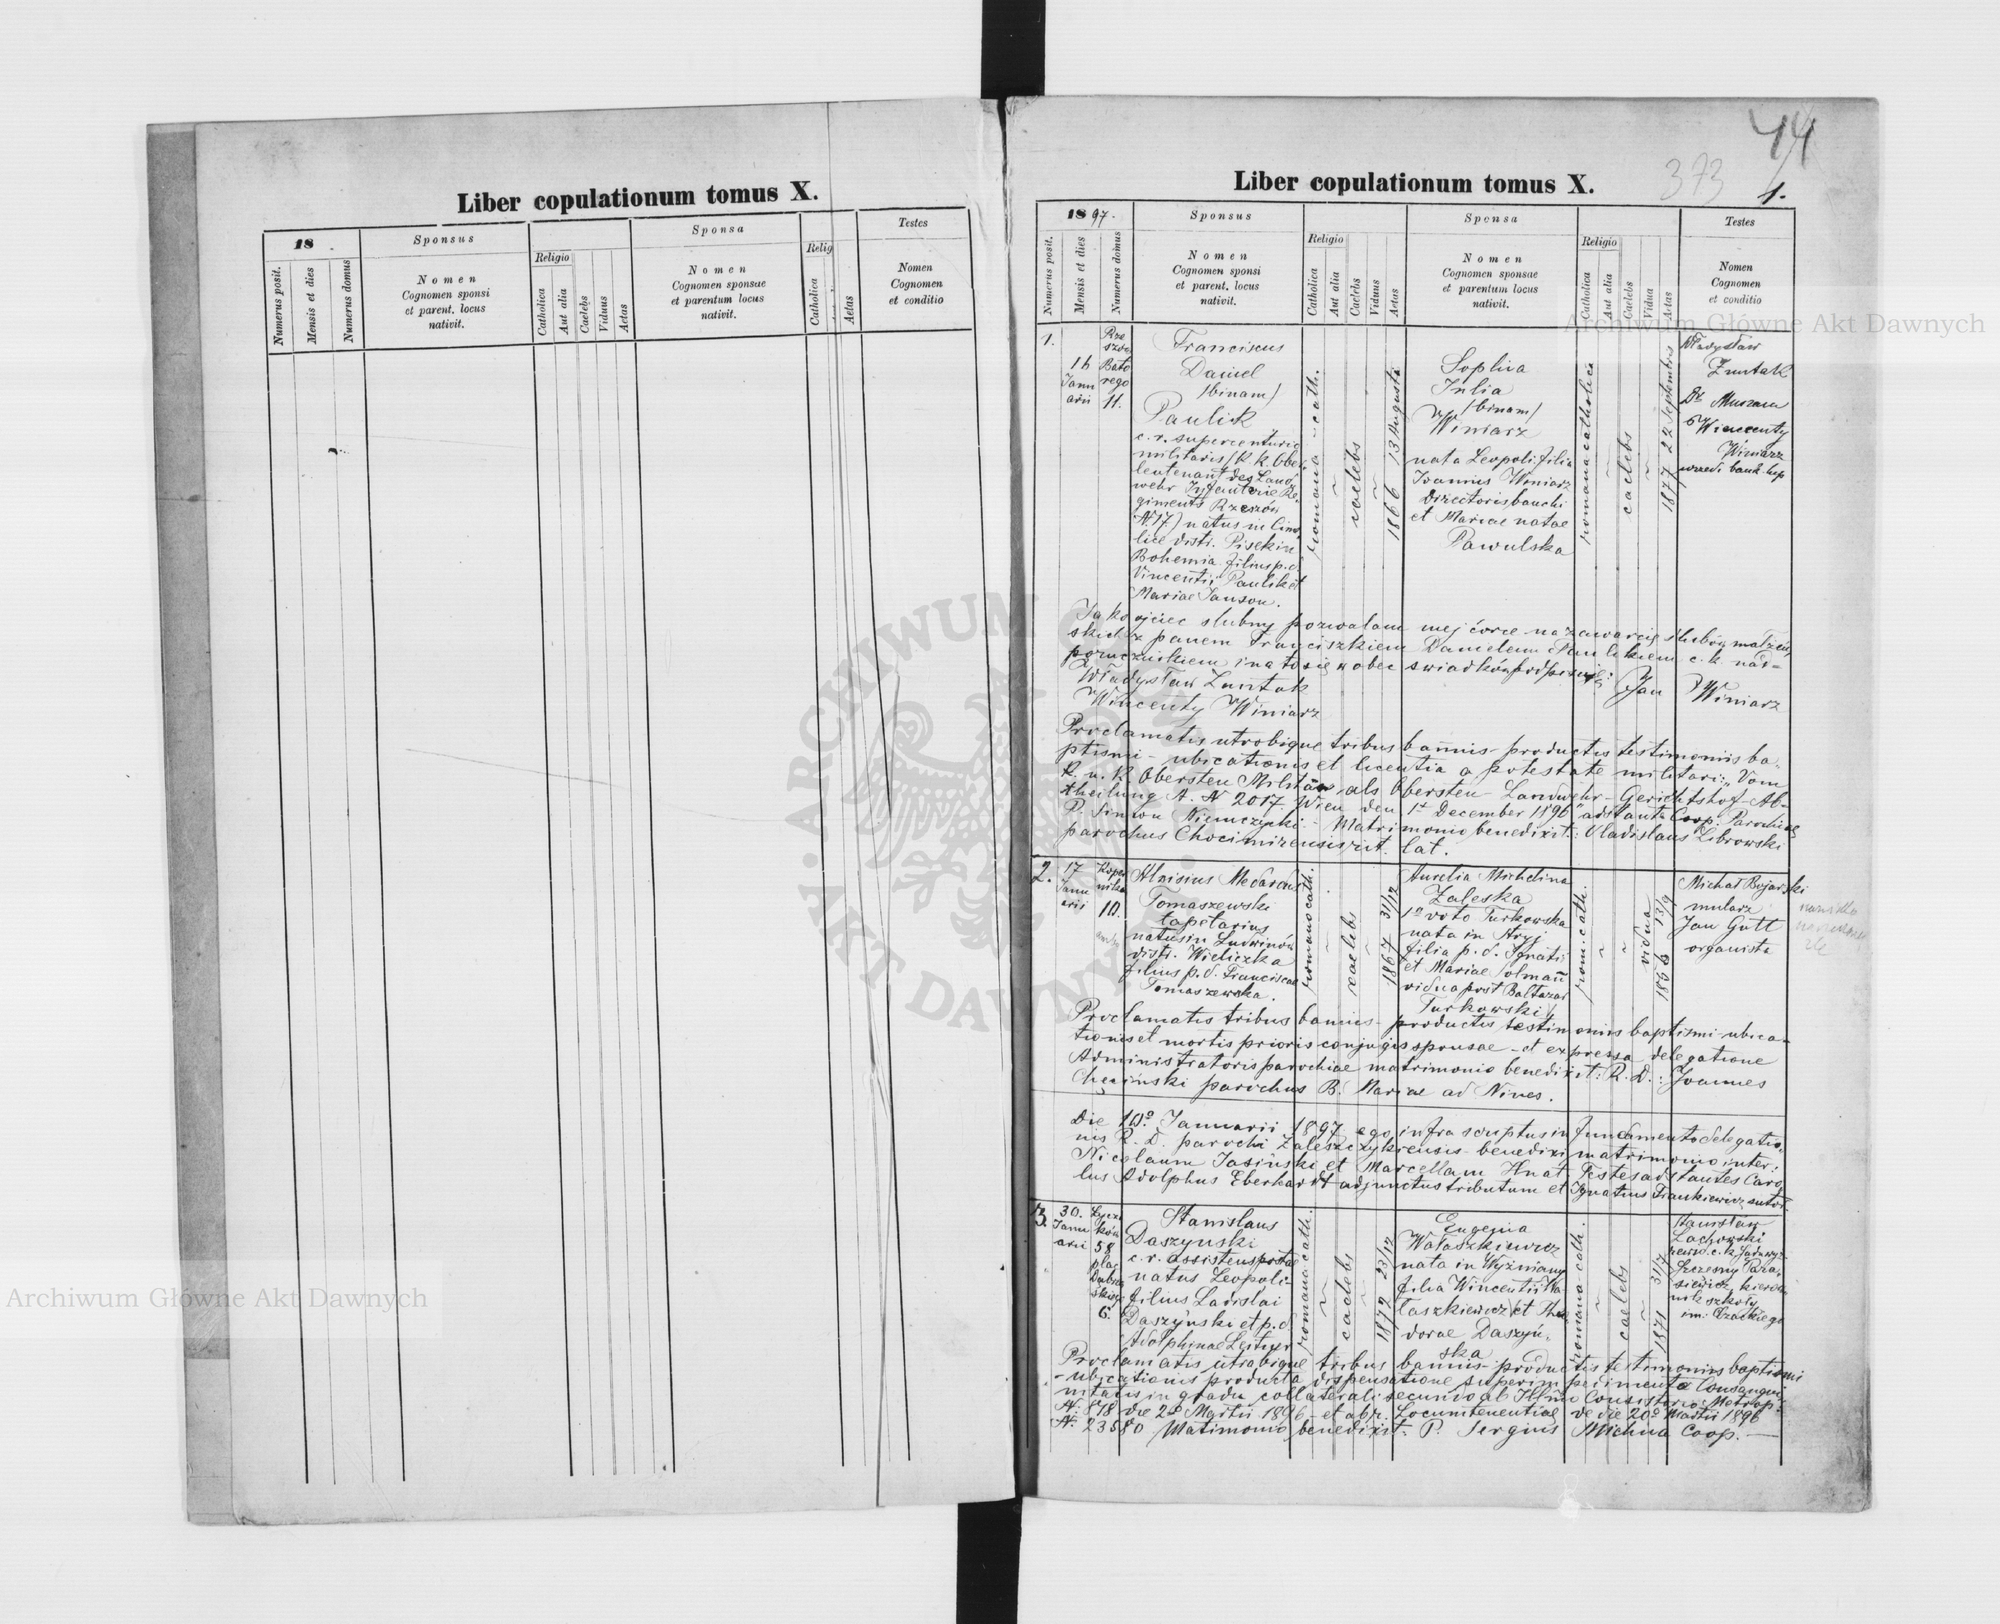 Liber copulationum tomus X.
18 .
Numerus posit.
Mensis et dies
Numerus domus
Sponsus
Nomen
Cognomen sponsi
et parent. locus
nativit.
Religio
Catholica
Aut alia
Caelebs
Viduus
Aetas
Sponsa
Nomen
Cognomen sponsae
et parentum locus
nativit.
Relig
Catholica
Aetas
Testes
Nomen
Cognomen
et conditio
44
373
1.
Liber copulationum tomus X.
1897.
Numerus posit.
Mensis et dies
Numerus domus
Sponsus
Nomen
Cognomen sponsi
et parent. locus
nativit.
Religio
Catholica
Aut alia
Caelebs
Viduus
Aetas
Sponsa
Nomen
Cognomen sponsae
et parentum locus
nativit.
Religio
Catholica
Aut alia
Caelebs
Vidua
Aetas
Testes
Nomen
Cognomen
et conditio
1.
Janu
arii
Rze
szów
Bato
rego
11.
Franciscus
Daniel
/binam/
Paulik
c. r. supercenturio
militaris/K. k. Ober
leutenant des Land
wehr Infanterie Re
giments Rzeszów
N. 17.) natus in
lice distr. Pisek in
Bohemia filius p. d.
Vincentii Paulik et
Mariae Janson.
romana-cath.
caelebs
1866 13 Augusti
Sophia
Julia
/binam/
Winiarz
nata Leopoli filia
Joannis Winiarz
Directoris banchi
et Mariae natae
Pawulska
romana catholica
caelebs
1877 22 Septembris
Władysław
Zontak
Wincenty
Winiarz
Jako ojciec slubny pozwalam mej córce na zawarcie slubów małżeń
skich z panem Franciszkiem Danielem Paulikiem c. k. nad=
porucznikiem i na to się wobec swiadków podpisuję:
Władysław Zontak
Jan Winiarz
Wincenty Winiarz
Proclamatis utrobique tribus bannis- productis testimoniis ba-
ptismi- ubicationis et licentia a potestate militari: "Vom
K. u. K. Obersten Militär als Obersten Landwehr-Gerichtshof-Ab-
theilung A. N 2017 Wien den 1t December 1896" adstante Coop. Parochiae
P. Simon Niemczycki- Matrimonio benedixit: Vladislaus Librowski
parochus Chocimirensis rit. lat.
2.
17
Janu
arii
Koper
nika
10.
Aloisius Medardus
Tomaszewski
tapetarius
natus in Ludwinów
distr. Wieliczka
filius p. d. Franciscae
Tomaszewska.
romano cath.
caelebs
1867 31/12
Aurelia Michelina
Zaleska
1o voto Turkowska
nata in Stryj
filia p. d. Ignatii
et Mariae Solmann
vidua post Baltazar
Turkowski
rom. cath.
vidua
13/9
Michał Bojarski
mularz
Jan Gutt
organista
Proclamatis tribus bannis- productis testimoniis baptismi- ubica-
tionis et mortis prioris conjugis sponsae- et expressa delegatione
Administratoris parochiae matrimonio benedixit: R. D.: Joannes
Chęciński parochus B. Mariae ad Nives.
Die 10o Januarii 1897 ego infra scriptus in fundamento delegatio-
nis R. D. parochi Zaleszczykiensis benedixi matrimonio inter:
Nicolaum Jasiński et Marcellam Hnat Testes adstantes Caro
lus Adolphus Eberhardt adjunctus tributum et Ignatius Frankiewicz sutor.
3.
30.
Janu
arii
Łycza
ków
58
plac
Dąbrow
skiego
6.
Stanislaus
Daszynski
c. r. assistens postae
natus Leopoli
filius Ladislai
Daszyński et p. d.
Adolphinae
romana cath.
caelebs
1872 23/12
Eugenia
Wałaszkiewicz
nata in Wyżniany
filia Wincentii Wa
łaszkiewicz et Theo
dorae Daszyń-
ska
romana cath.
caelebs
1871 31/7
Stanisław
Lachowski
Szczesny Para-
siewicz, kierow
nik szkoły
im. Czackiego
Proclamatis utrobique tribus bannis- productis testimoniis baptismi
-ubicationis producta dispensatione super impedimento Consangui-
nitatis in gradu collaterali secundo ab Illmo Consistorio: Metrop:
N: 878 die 2o Martii 1896- et ab r. Locumtenentiae de die 20o Martii 1896
N: 23580 Matimonio benedixit: P. Sergius Michna Coop.
Archiwum Główne Akt Dawnych
Archiwum Główne Akt Dawnych
ARCHIWUM GŁÓWNE AKT DAWNYCH